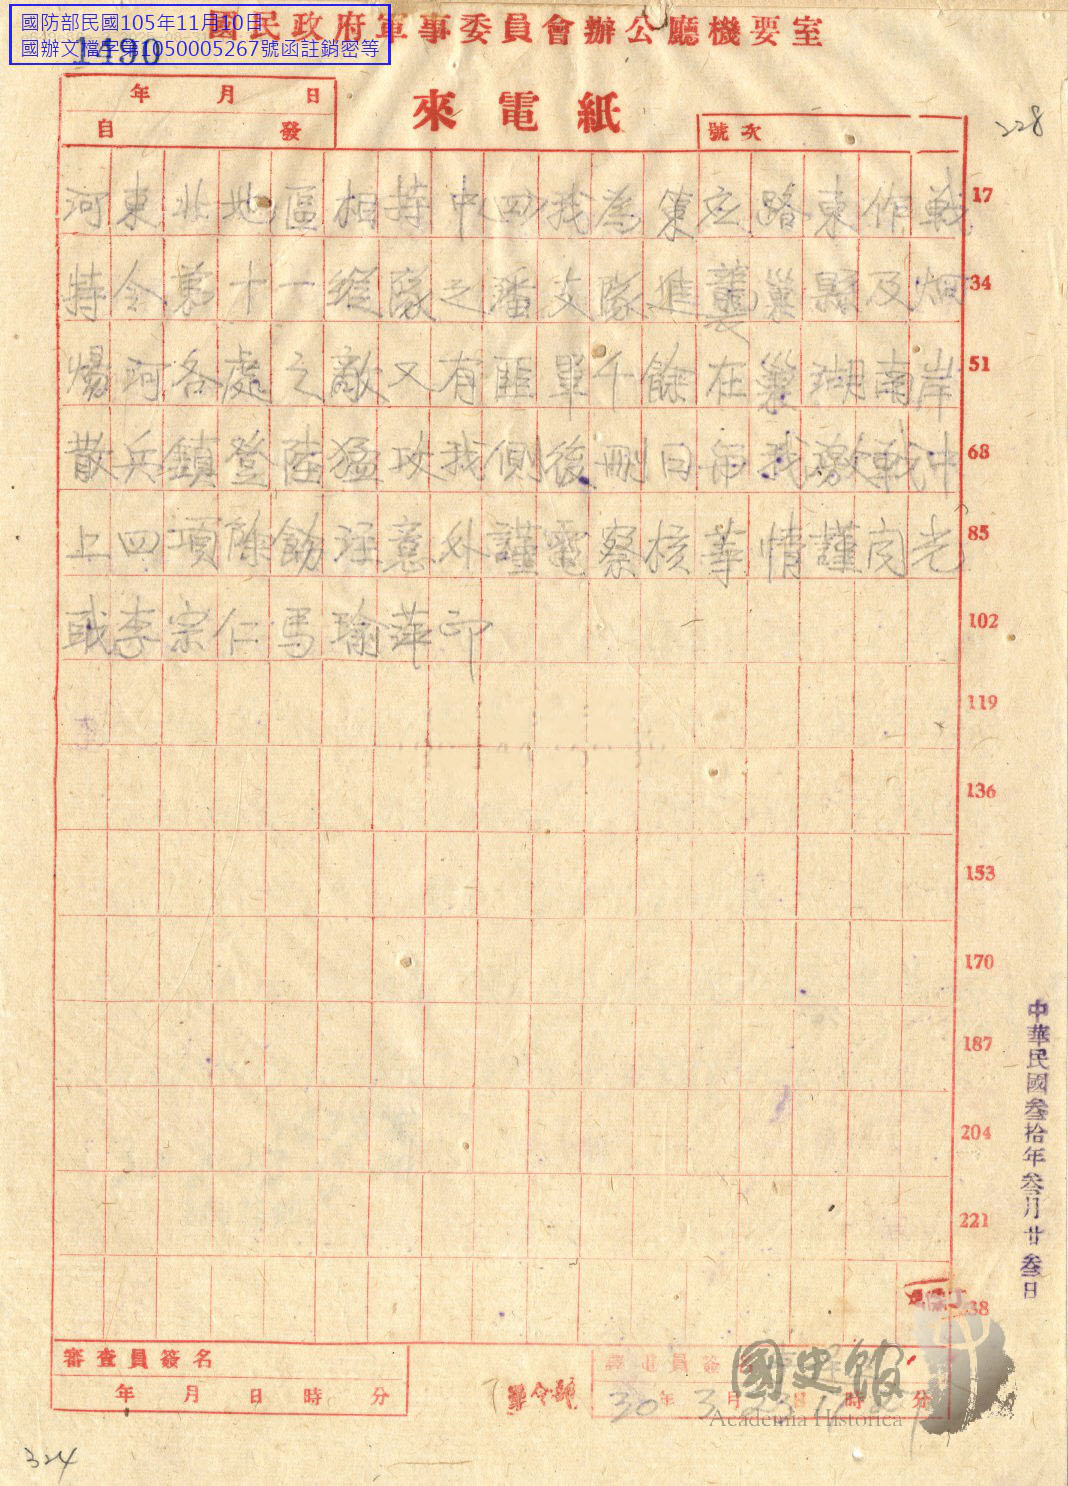 國防部民國105年11月10日
國辦文檔字第1050005267號函註銷密等
1490
國民政府軍事委員會辦公廳機要室
年 月 日
自 發
來電紙
號次
228
河東北地區相持中(四)我為策应路東作戰 17
特令第十一縱隊之潘支隊進襲巢縣及烔 34
煬河各處之敵又有匪軍千餘在巢湖南岸 51
散兵鎮登陸猛攻我側後刪日與我激戰中 68
上四項除飭注意外謹電察核等情謹聞光 85
或李宗仁馬瑜萍印 102
119
136
153
170
187
204
221
238
中華民國叁拾年叁月廿叁日
審查員簽名
年 月 日 時 分
軍令部
譯電員簽名
30年3月23日 時 分
國史館
Academia Historica
324